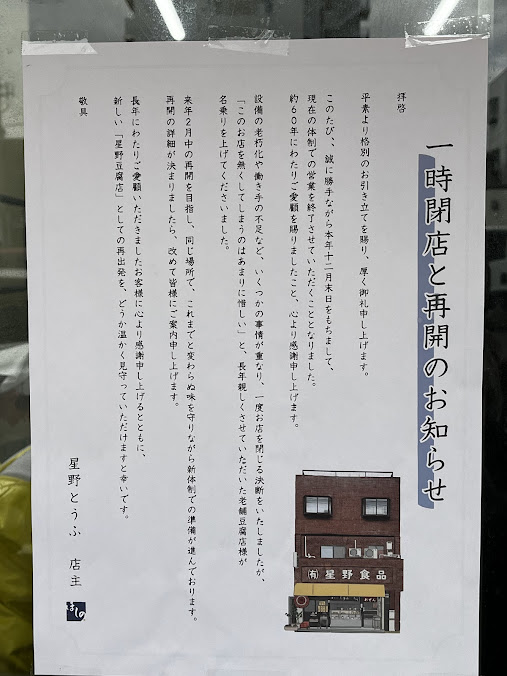 一時閉店と再開のお知らせ
拝啓
平素より格別のお引き立てを賜り、厚く御礼申し上げます。
このたび、、誠に勝手ながら本年十二月末日をもちまして、
現在の体制での営業を終了させていただくこととなりました。
約60年にわたりご愛顧を賜りましたこと、心より感謝申し上げます。
設備の老朽化や働き手の不足など、いくつかの事情が重なり、一度お店を閉じる決断をいたしましたが、
「このお店を無くしてしまうのはあまりに惜しい」と、長年親しくさせていただいた老舗豆腐店様が
名乗りを上げてくださいました。
来年2月中の再開を目指し、同じ場所で、これまでと変わらぬ味を守りながら新体制での準備が進んでおります。
再開の詳細が決まりましたら、改めて皆様にご案内申し上げます。
長年にわたりご愛顧いただきましたお客様に心より感謝申し上げるとともに、
新しい「星野豆腐店」としての再出発を、どうか温かく見守っていただけますと幸いです。
敬具
星野とうふ 店主
ほしの
㈲星野食品